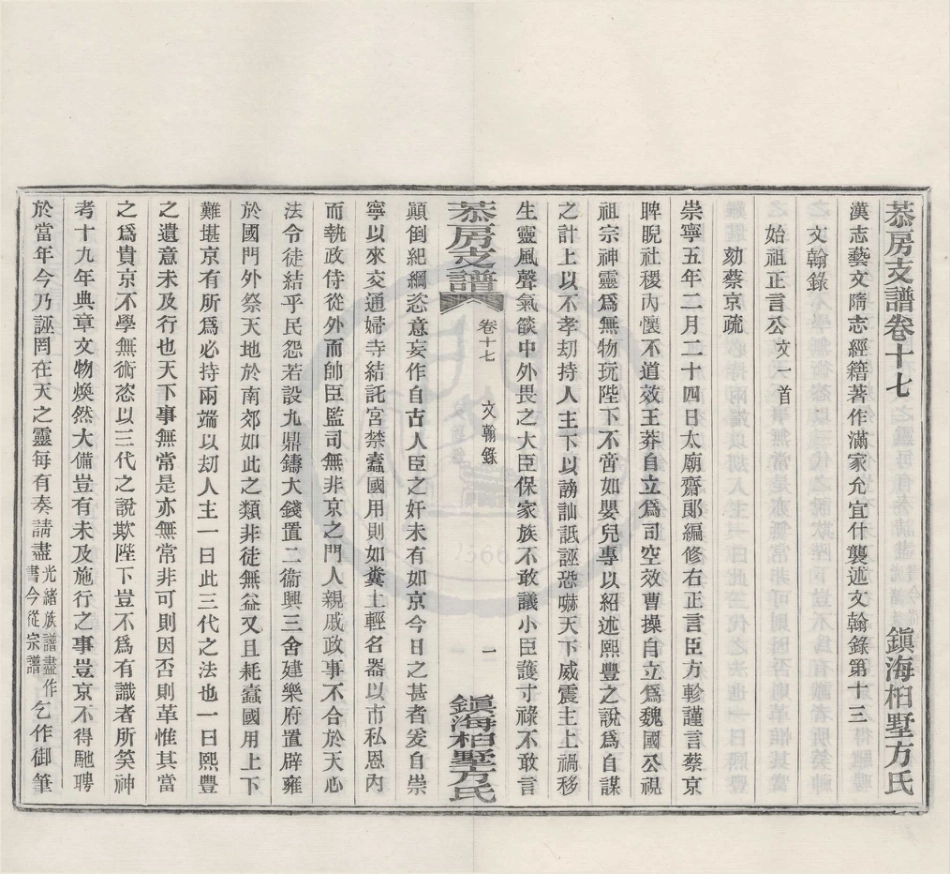 恭房支譜卷十七 鎮海桕墅方氏
漢志藝文隋志經籍著作滿家允宜什襲述文翰錄第十三
文翰錄
始祖正言公 文一首
劾蔡京疏
崇寧五年二月二十四日太廟齋郎編修右正言臣方軫謹言蔡京
睥睨社稷內懷不道效王莽自立爲司空效曹操自立爲魏國公視
祖宗神靈爲無物玩陛下不啻如嬰兒專以紹述熙豐之說爲自謀
之計上以不孝刧持人主下以謗訕詆誣恐嚇天下威震主上禍移
生靈風聲氣燄中外畏之大臣保家族不敢議小臣護寸祿不敢言
恭房支譜 卷十七 文翰錄 一 鎮海桕墅方氏
顛倒紀綱恣意妄作自古人臣之奸未有如京今日之甚者爰自崇
寧以來交通婦寺結託宮禁蠹國用則如糞土輕名器以市私恩內
而執政侍從外而帥臣監司無非京之門人親戚政事不合於天心
法令徒結乎民怨若設九鼎鑄大錢置二衞興三舍建樂府置辟雍
於國門外祭天地於南郊如此之類非徒無益又且耗蠹國用上下
難堪京有所爲必持兩端以刧人主一日此三代之法也一日熙豐
之遺意未及行也天下事無常是亦無常非可則因否則革惟其當
之爲貴京不學無術恣以三代之說欺陛下豈不爲有識者所笑神
考十九年典章文物煥然大備豈有未及施行之事豈京不得馳騁
於當年今乃誣罔在天之靈每有奏請盡光緒族譜盡作書今從宗譜乞作御筆